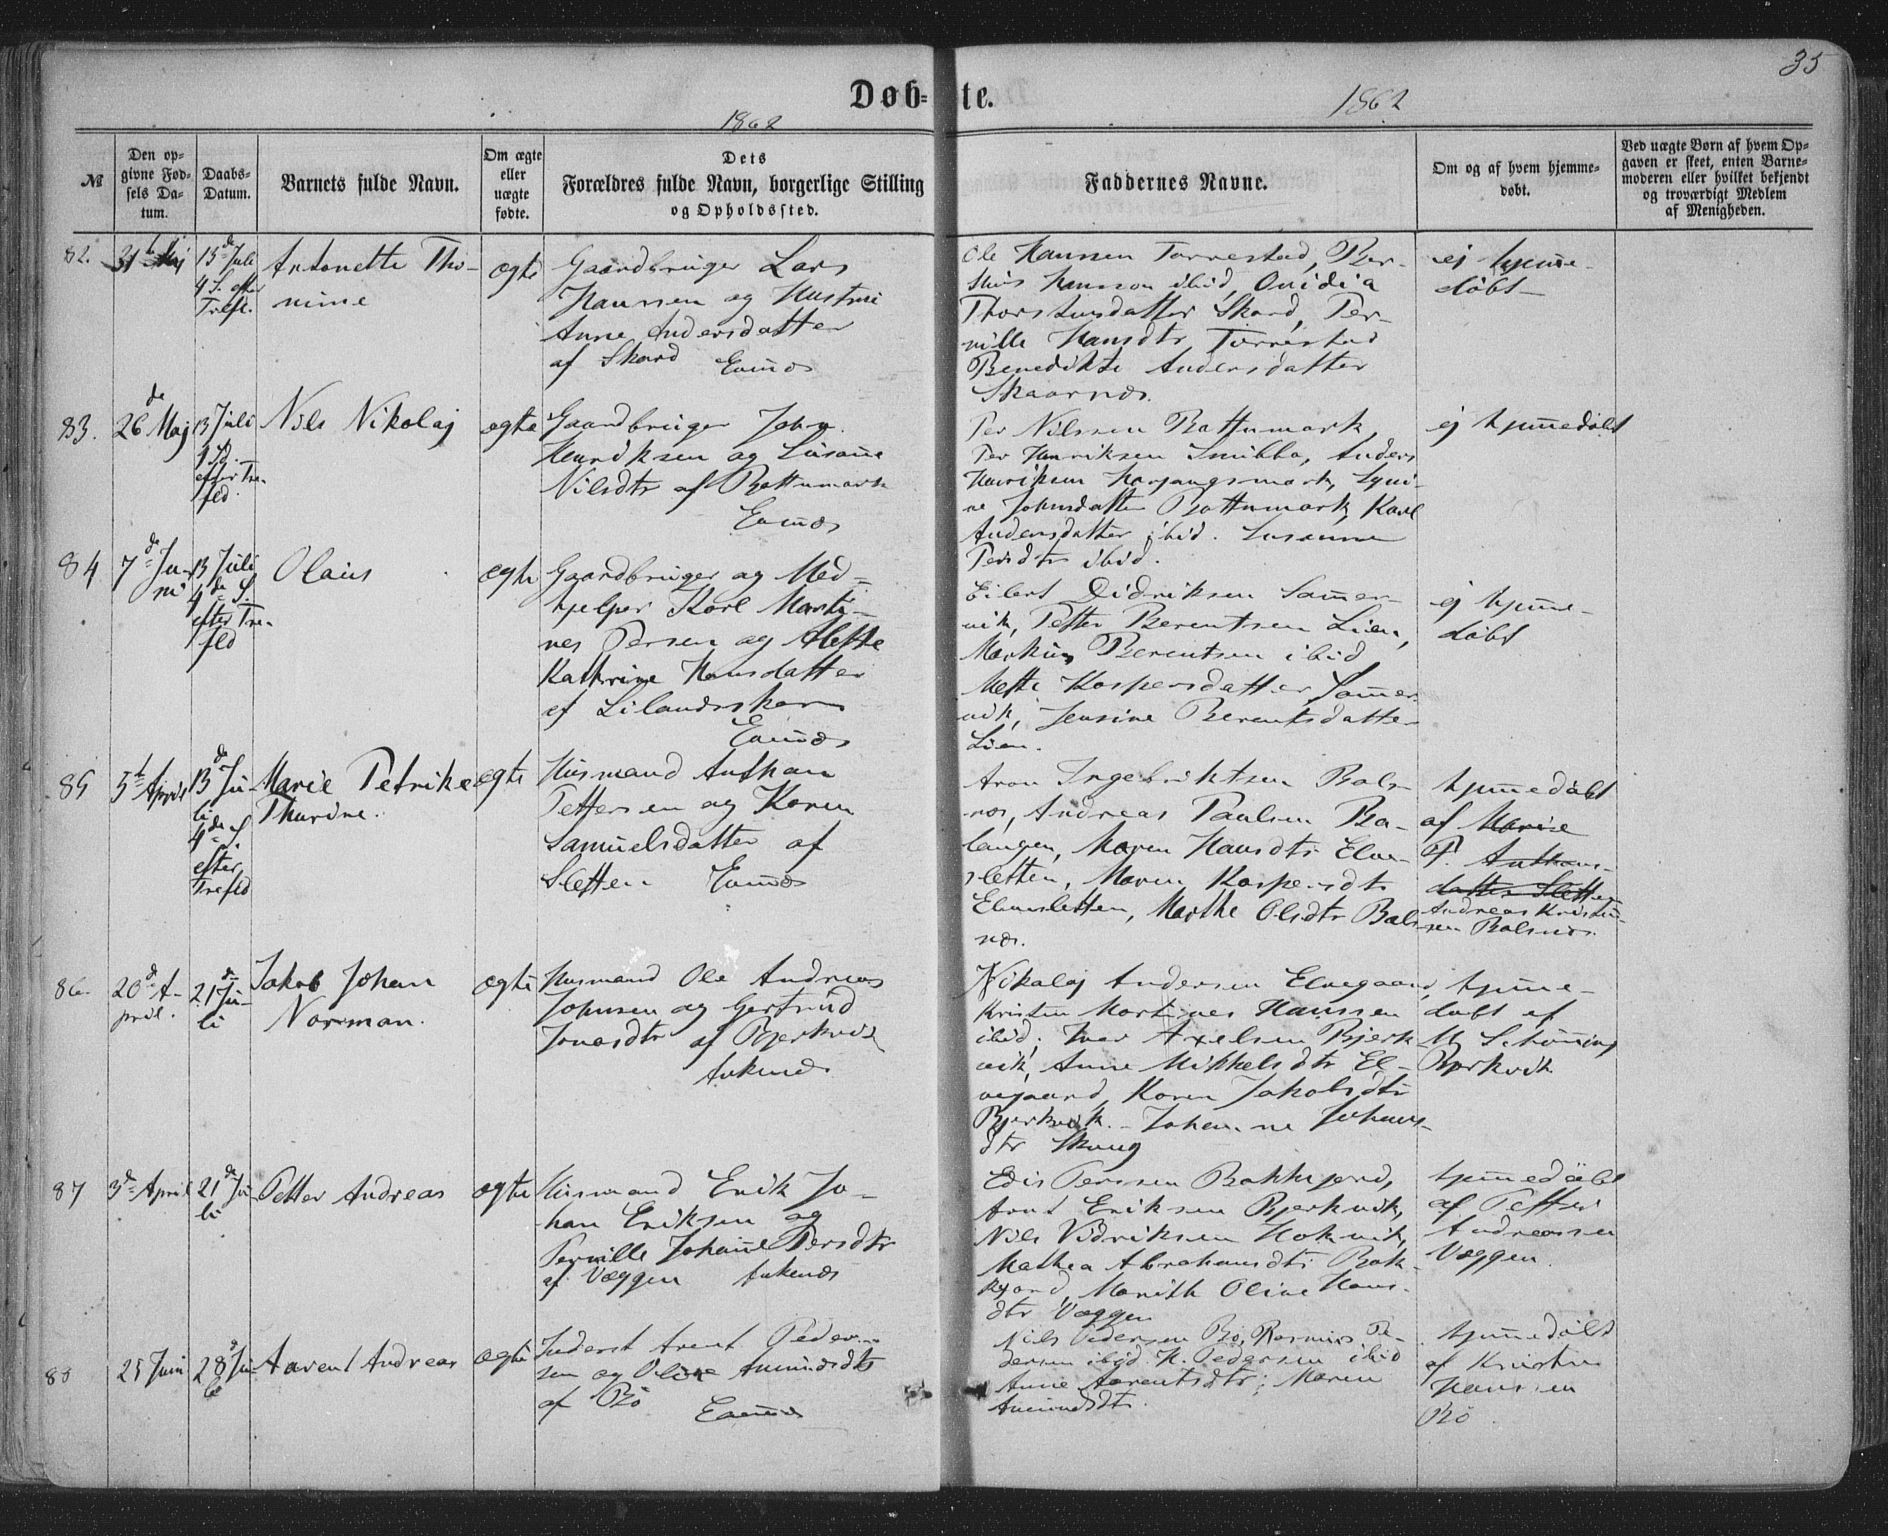 35
Døb-te.
1862
1862
№
Den opgivne Fødsels Datum.
Daabs-Datum.
Barnets fulde Navn.
Om ægte eller uægte fødte.
Dets Forældres fulde Navn, borgerlige Stilling og Opholdssted.
Faddernes Navne.
Om og af hvem hjemmedøbt.
Ved uægte Børn af hvem Opgaven er skeet, enten Barnemoderen eller hvilket bekjendt og troværdigt Medlem af Menigheden.
82.
31te Maj
13de Juli
4 S. efter
Trefl.
Antonette Tho-
mine
ægte
Gaardbruger Lars
Hansen og Hustru
Anne Andersdatter
af Skard Evenæs
Ole Hansen Tarrestad, Ber-
Hansen ibid, Ovidia
Thorstensdatter Skard, Per-
nille Hansdtr Tarrestad
Benedikte Andersdatter
Skaarnæs.
ej hjemme-
døbt
83.
26de Maj
13 Juli
4 S.
efter Tre-
fld.
Nils Nikolaj
ægte
Gaardbruger John
Henriksen og Susanne
Nilsdtr af Bottnmark
Evenæs
Per Nilssen Bottnmark
Per Henriksen Snubba, Anders
Henriksen Herjangsmark,
Johnsdatter Bottnmark,
Andersdatter ibid. Susanne
Persdtr ibid.
ej hjemmedøbt
84
7de Ju-
ni
13 Juli
4de S.
efter Tre-
fld
Olaus
ægte
Gaardbruger og Med-
hjelper Karl Marti-
nes Persen og Alette
Kathrine Hansdatter
af Lilandsskar
Evenæs
Eilert Didriksen Sommer-
vik, Petter Berentsen Lien,
Markus Berentsen ibid
Mette Kaspersdatter Sommer-
vik, Jensine Berentsdatter
Lien.
ej hjemme-
døbt
85
5te April
13de Ju-
li
4de S.
efter
Trefld
Marie Petrike
Thurine.
ægte
Husmand Anthon
Pettersen og Karen
Samuelsdatter af
Sletten Evenæs
Aron Ingebriktsen Bals-
næs, Andreas Paulsen Ba-
langen, Maren Hansdtr Elve-
sletten, Maren Kaspersdtr
Elvesletten, Marthe Olsdtr Bals
næs.
hjemmedøbt
af Marie
P. Anthons-
datter Sletten
Andreas Kristen-
sen Balsnæs.
86.
20de A-
pril.
21de Ju-
li
Jakob Johan
Norman.
ægte
Husmand Ole Andreas
Johnsen og Gertrud
Jonasdtr af Bjerkvik
Ankenæs
Nikolaj Andersen Elvegaard,
Kristen Martines Hanssen
ibid, Iver Axelsen Bjerk
vik, Anne Mikkelsdtr El-
vegaard, Karen Jakobsdtr
Bjerkvik. Johanne Johans-
dtr Skoug
hjemme-
døbt af
M Schønning
Bjerkvik
87
3de April
21de Ju-
li
Petter Andreas
ægte
Husmand Erik Jo-
han Eriksen og
Pernille Johanne Persdtr
af Væggen Ankenæs
Edis Perssen Bakkejord,
Arnt Eriksen Bjerkvik,
Nils Didriksen Hokvik,
Mathea Abrahamsdtr Bak-
kejord, Marith Oline Hans-
dtr Væggen
hjemmedøbt
af Petter
Andreassen
Væggen.
88
25 Juni
28de Ju-
li
Aarent Andreas
ægte
Inderst Arent Peder-
sen og Oline Amundsdtr
af Bö Evenæs
Nils Pedersen Bö, Rasmus Pe-
dersen ibid. H. Pedersen ibid
Anne Aarentsdtr; Maren
Amundsdtr.
hjemmedøbt
af Kristen
Hanssen
Bö.